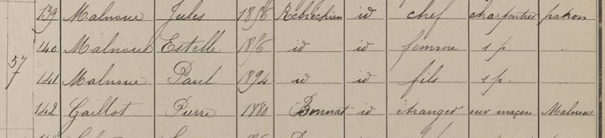 139 Malnoue Jules 1856 Rebréchien id chef charpentier patron
140 Malnoue Estelle 1856 id id femme s p
57
141 Malnoue Paul 1894 id id fils s p
142 Gaillot Pierre 1880 Bonnat id étranger ouv maçon Malnoue